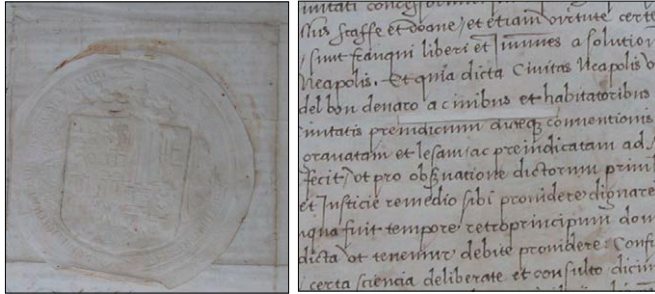 nitati concessionis
ius staffe et doane, et etiam virtute certe
, sunt franqui liberi et Jnmunes a solution
Neapolis. Et quia dicta Civitas Neapolis v
del bon denaro a civibus et habitatoribus
mitatis preiudicium dicteq3 conventionis
gravatam et lesam, ac preiudicatam ad
fecit, ut pro observatione dictorum privil
et Justicie remedio sibi providere dignare
qua fuit tempore retroprincipum dom
dicta ut tenemur debite providere: Confi
certa sciencia deliberate et consulto dicim